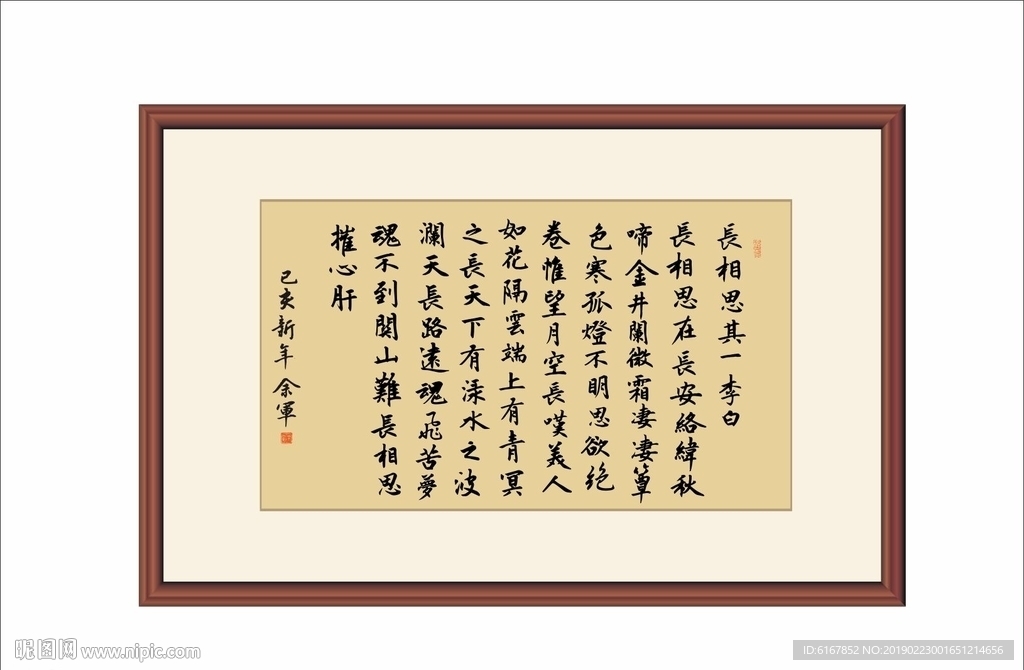 長相思其一李白
長相思在長安絡緯秋
啼金井闌微霜凄凄簟
色寒孤燈不明思欲绝
卷惟望月空長嘆美人
如花隔雲端上有青冥
之長天下有淥水之波
瀾天長路遠魂飛苦夢
魂不到関山難長相思
摧心肝
己亥新年余軍
昵图网 www.nipic.com
ID:6167852 NO:20190223001651214656